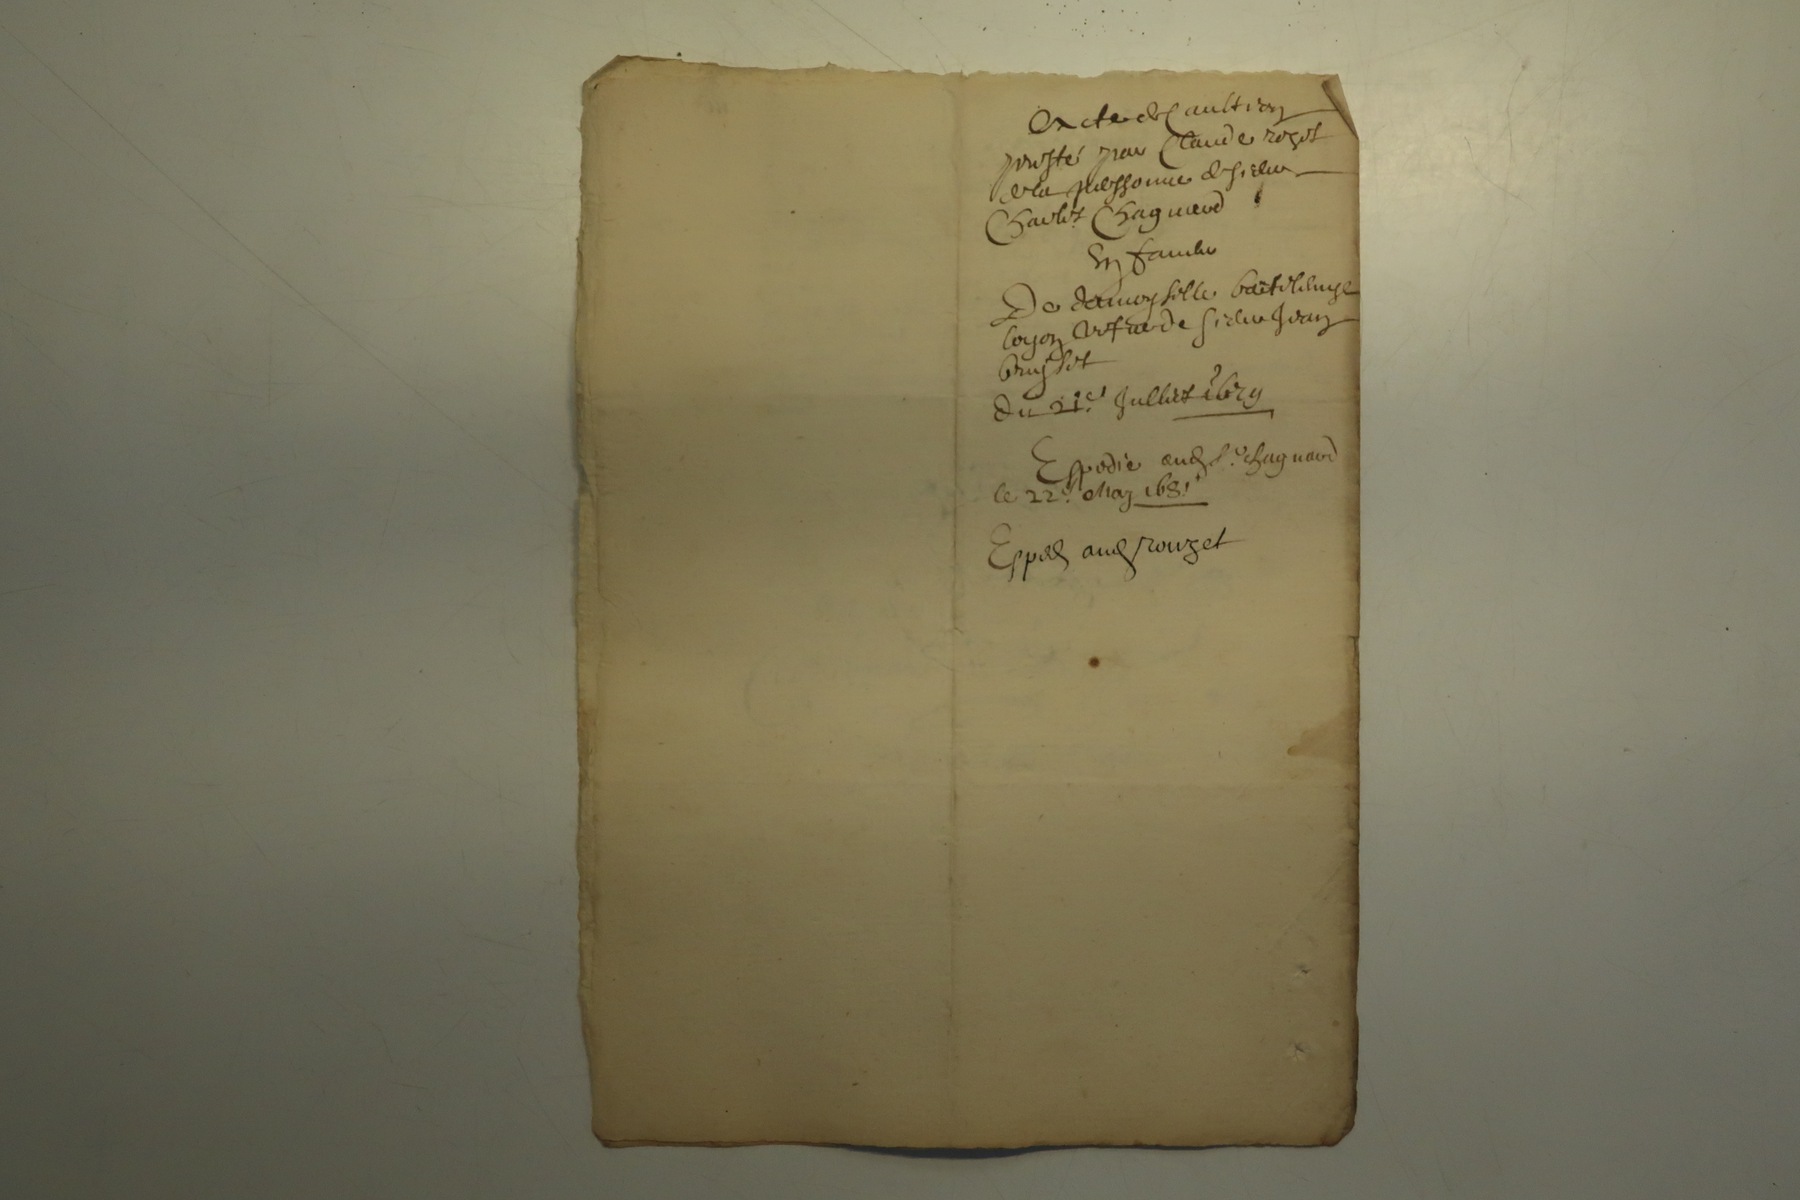 Acte de Caultion
presté par Claude rozot
de la personne de sieur
Charles Chagnard
En faveur
De damoyselle
loyon vefue de sieur Jean
bruslot
du 21e Julliet 1679
Expedie aud sr chagnard
le 22e May 1681
Exped aud rouzet